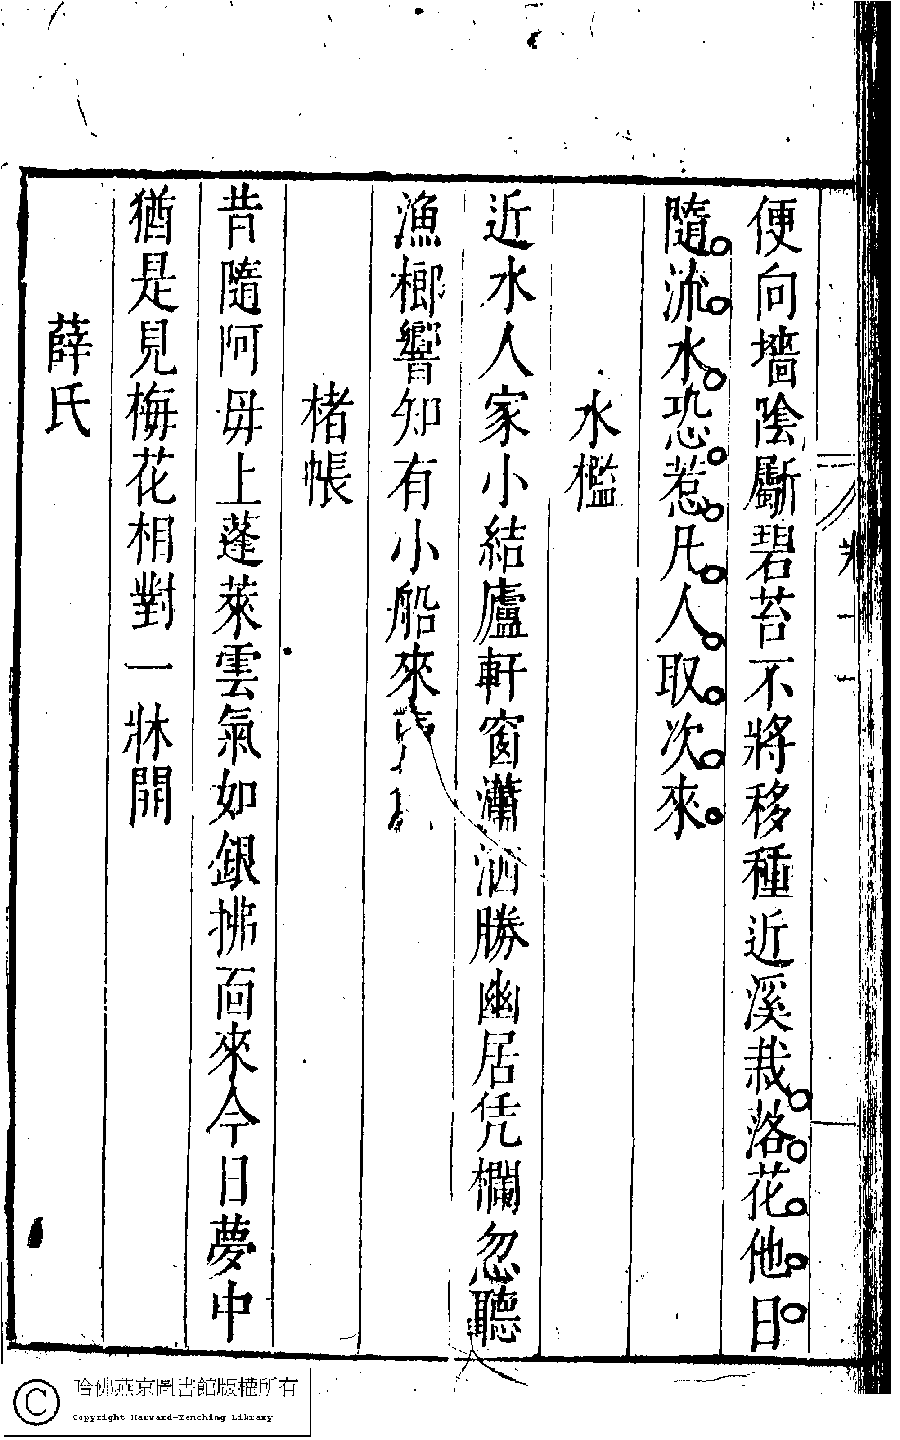 便向墻陰斸碧苔不將移種近溪栽落花他日
隨流水恐惹凡人取次來
水檻
近水人家小結廬軒窗瀟洒勝幽居凭欄忽聽
漁榔響知有小船來
楮帳
昔隨阿母上蓬萊雲氣如銀拂面來今日夢中
猶是見梅花相對一牀開
薛氏
哈佛燕京圖書館版權所有
Copyright Harvard-Yenching Library